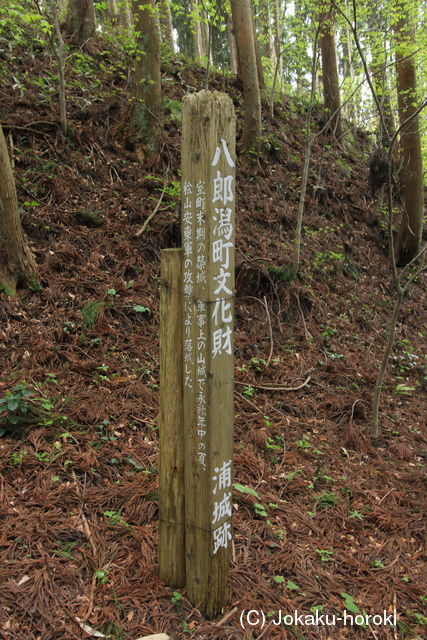 八郎潟町文化財 浦城跡
室町末期の築城・軍事上の山城で永禄年中の夏、
桧山安東軍の攻撃により落城した
(C) Jokaku-horoki